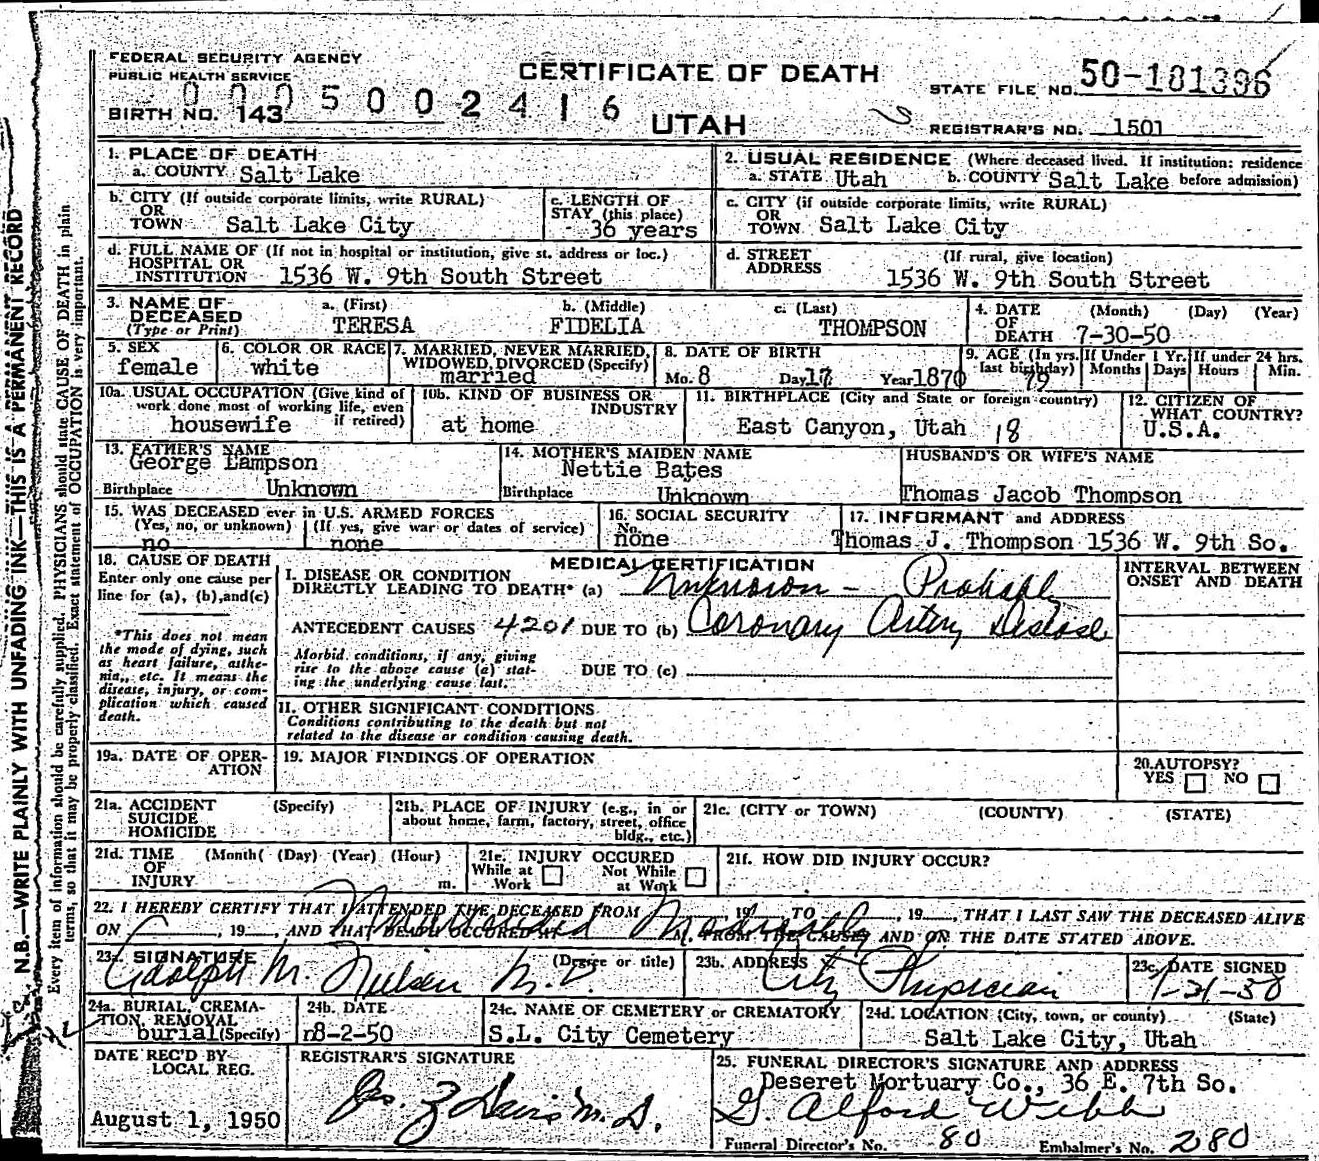 FEDERAL SECURITY AGENCY
PUBLIC HEALTH SERVICE
CERTIFICATE OF DEATH
UTAH
STATE FILE NO. 50-181396
0005002416
BIRTH NO. 143
REGISTRAR'S NO. 1501
N.B.—WRITE PLAINLY WITH UNFADING INK—THIS IS A PERMANENT RECORD
Every item of information should be carefully supplied. PHYSICIANS should state CAUSE OF DEATH in plain
terms, so that it may be properly classified. Exact statement of OCCUPATION is very important.
1. PLACE OF DEATH
a. COUNTY Salt Lake
2. USUAL RESIDENCE (Where deceased lived. If institution: residence
a. STATE Utah b. COUNTY Salt Lake before admission)
b. CITY (If outside corporate limits, write RURAL)
OR
TOWN Salt Lake City
c. LENGTH OF
STAY (this place)
36 years
c. CITY (if outside corporate limits, write RURAL)
OR
TOWN Salt Lake City
d. FULL NAME OF (If not in hospital or institution, give st. address or loc.)
HOSPITAL OR
INSTITUTION 1536 W. 9th South Street
d. STREET (If rural, give location)
ADDRESS 1536 W. 9th South Street
3. NAME OF a. (First) b. (Middle) c. (Last)
DECEASED
(Type or Print) TERESA FIDELIA THOMPSON
4. DATE (Month) (Day) (Year)
OF
DEATH 7-30-50
5. SEX
female
6. COLOR OR RACE
white
7. MARRIED, NEVER MARRIED,
WIDOWED, DIVORCED (Specify)
married
8. DATE OF BIRTH
Mo. 8 Day 17 Year 1870
9. AGE (In yrs. last birthday) 79
If Under 1 Yr. Months Days
If under 24 hrs. Hours Min.
10a. USUAL OCCUPATION (Give kind of
work done most of working life, even
if retired)
housewife
10b. KIND OF BUSINESS OR
INDUSTRY
at home
11. BIRTHPLACE (City and State or foreign country)
East Canyon, Utah 18
12. CITIZEN OF
WHAT COUNTRY?
U.S.A.
13. FATHER'S NAME
George Lampson
Birthplace Unknown
14. MOTHER'S MAIDEN NAME
Nettie Bates
Birthplace Unknown
HUSBAND'S OR WIFE'S NAME
Thomas Jacob Thompson
15. WAS DECEASED ever in U.S. ARMED FORCES
(Yes, no, or unknown) (If yes, give war or dates of service)
no none
16. SOCIAL SECURITY
No.
none
17. INFORMANT and ADDRESS
Thomas J. Thompson 1536 W. 9th So.
18. CAUSE OF DEATH
Enter only one cause per
line for (a), (b), and (c)
*This does not mean
the mode of dying, such
as heart failure, asthe-
nia, etc. It means the
disease, injury, or com-
plication which caused
death.
MEDICAL CERTIFICATION
I. DISEASE OR CONDITION
DIRECTLY LEADING TO DEATH* (a) Unknown - Probable
ANTECEDENT CAUSES 4201 DUE TO (b) Coronary Artery Disease
Morbid conditions, if any, giving
rise to the above cause (a) stat-
ing the underlying cause last.
DUE TO (c)
II. OTHER SIGNIFICANT CONDITIONS
Conditions contributing to the death but not
related to the disease or condition causing death.
INTERVAL BETWEEN
ONSET AND DEATH
19a. DATE OF OPER-
ATION
19. MAJOR FINDINGS OF OPERATION
20. AUTOPSY?
YES NO
21a. ACCIDENT (Specify)
SUICIDE
HOMICIDE
21b. PLACE OF INJURY (e.g., in or
about home, farm, factory, street, office
bldg., etc.)
21c. (CITY or TOWN) (COUNTY) (STATE)
21d. TIME (Month) (Day) (Year) (Hour)
OF
INJURY m.
21e. INJURY OCCURED
While at Work Not While at Work
21f. HOW DID INJURY OCCUR?
22. I HEREBY CERTIFY THAT I ATTENDED THE DECEASED FROM , 19 TO , 19 , THAT I LAST SAW THE DECEASED ALIVE
ON , 19 , AND THAT DEATH OCCURED AT M. FROM THE CAUSES AND ON THE DATE STATED ABOVE.
23a. SIGNATURE (Degree or title)
Adolph M. Nielsen M.D.
23b. ADDRESS
City Physician
23c. DATE SIGNED
24a. BURIAL, CREMA-
TION, REMOVAL
burial (Specify)
24b. DATE
8-2-50
24c. NAME OF CEMETERY or CREMATORY
S.L. City Cemetery
24d. LOCATION (City, town, or county) (State)
Salt Lake City, Utah
DATE REC'D BY
LOCAL REG.
August 1, 1950
REGISTRAR'S SIGNATURE
25. FUNERAL DIRECTOR'S SIGNATURE AND ADDRESS
Deseret Mortuary Co., 36 E. 7th So.
G. Alford Webb
Funeral Director's No. 80 Embalmer's No. 280